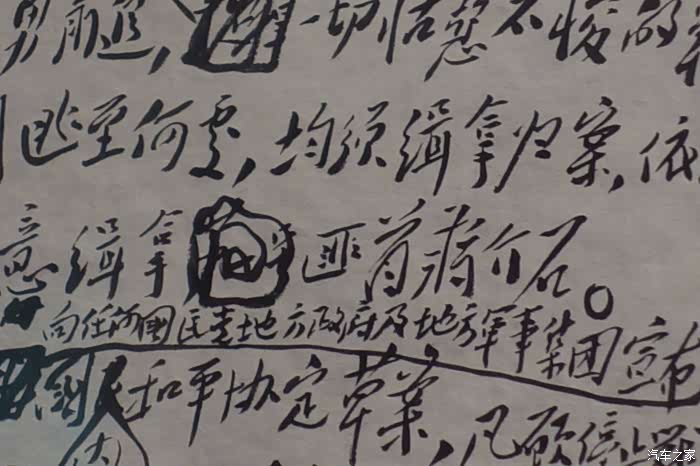 勇前进,一切怙恶不悛的
逃至何处,均须缉拿归案,依
意缉拿匪首蒋介石。
向任何国民党地方政府及地方军事集团宣布
国内和平协定草案,凡愿停止战
汽车之家